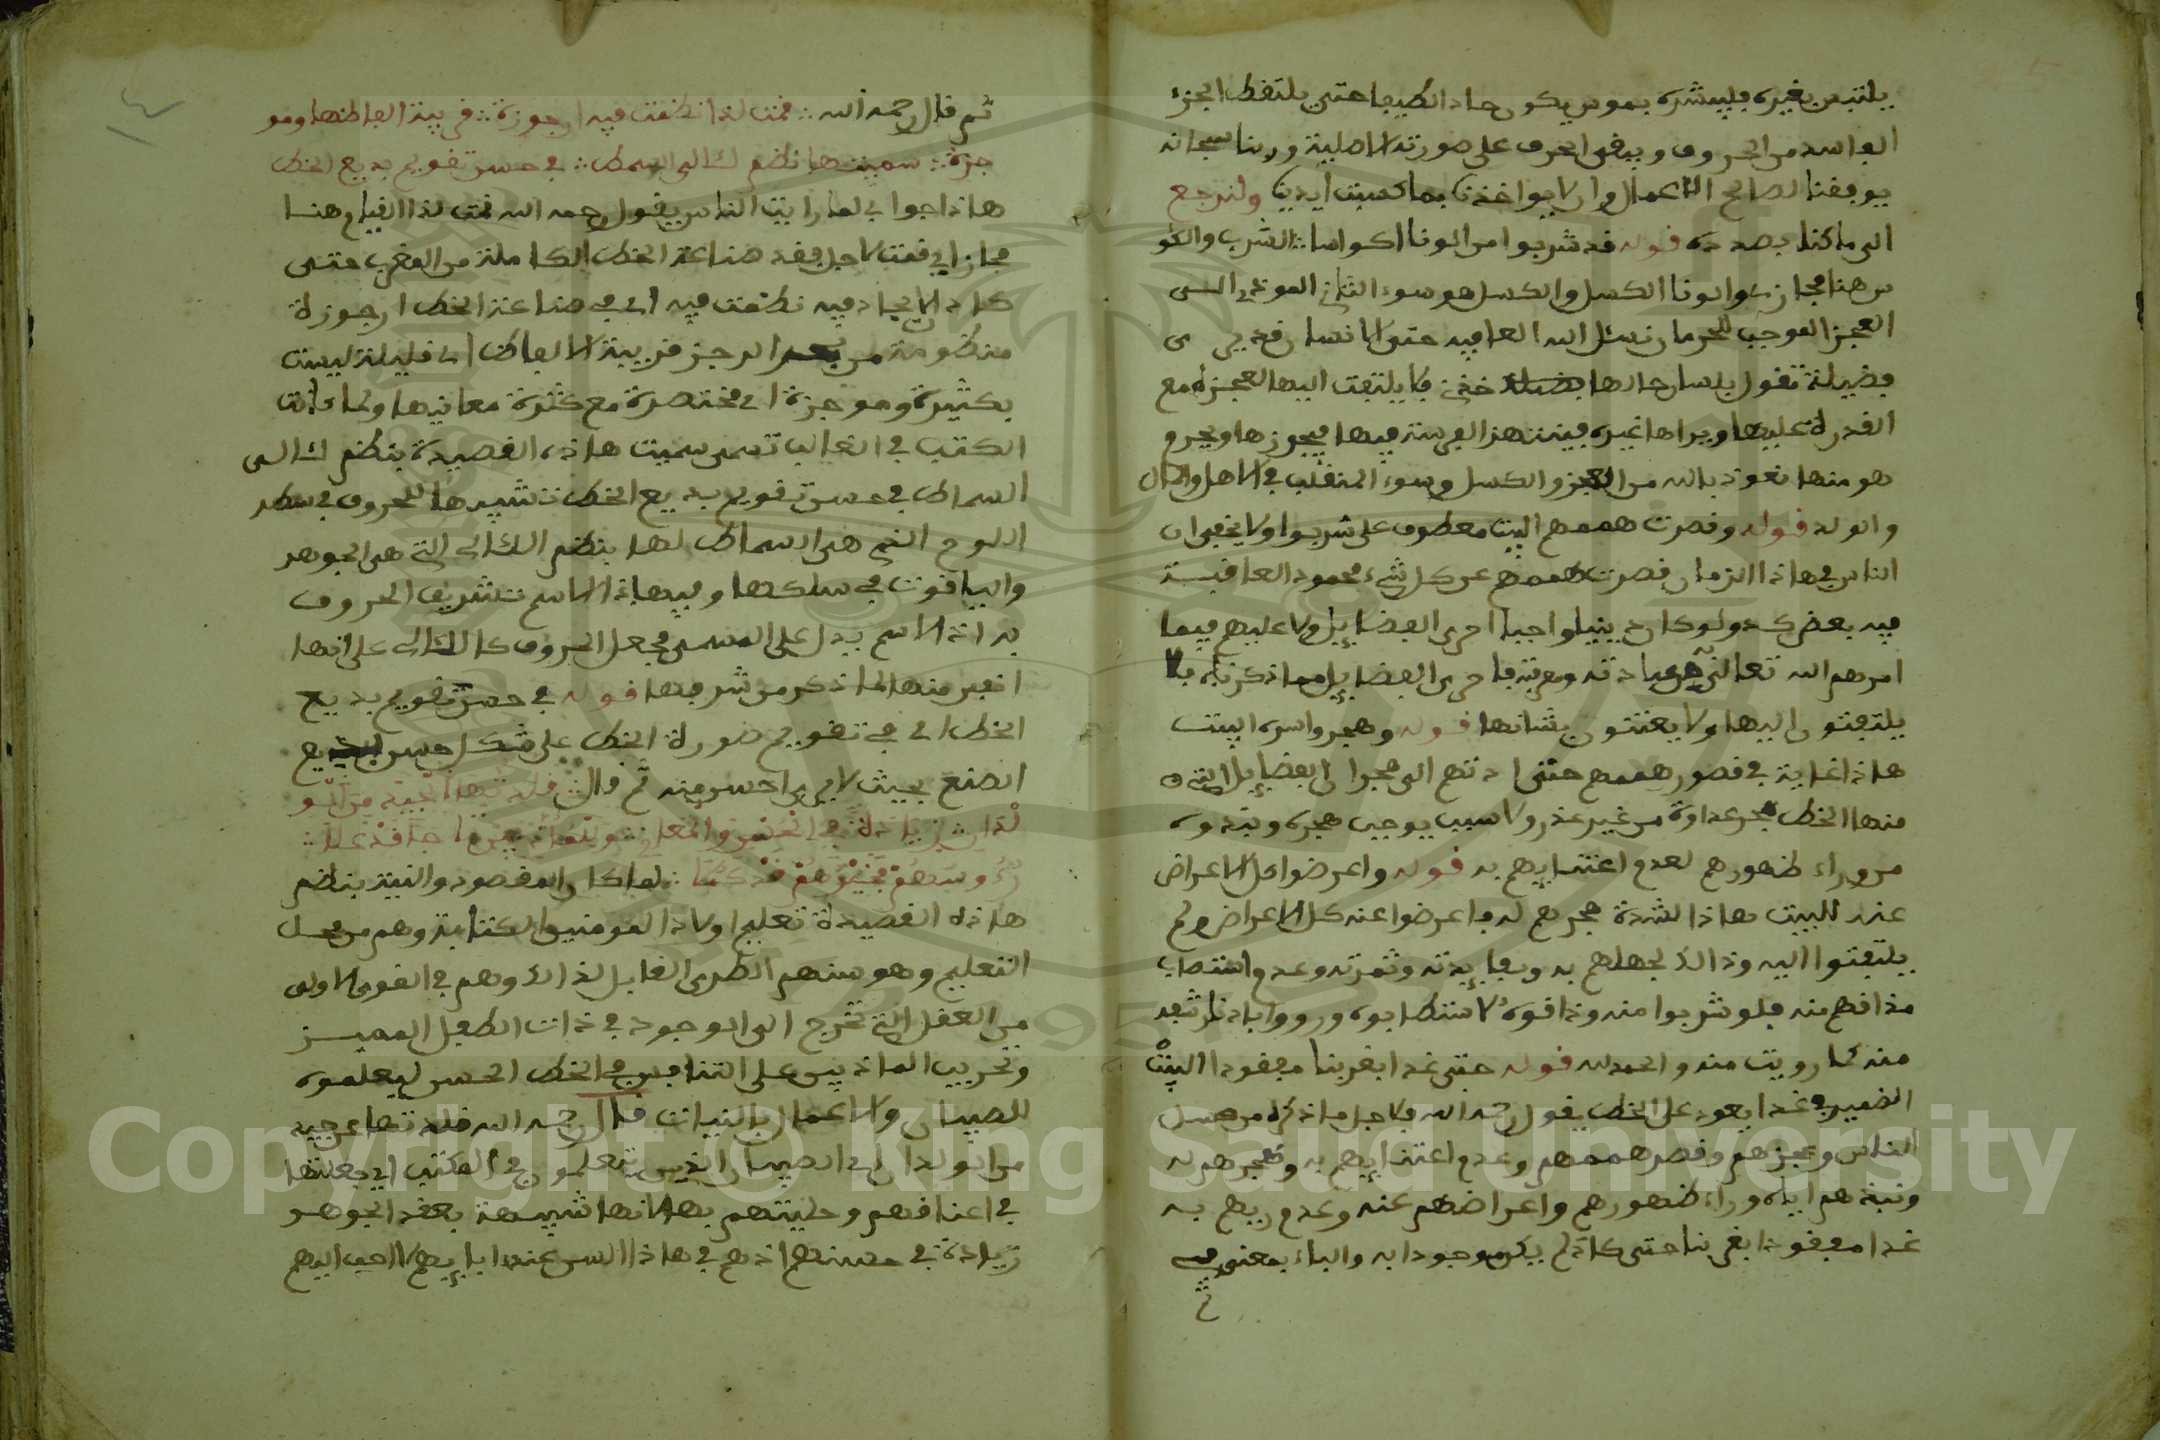 يلتبس بغيره فليبشره بموس يكون حادا لطيفا حتى يلتفط الجزء
الفاسد من الحروف ويبقى الحرف على صورته الاصلية وربنا سبحانه
يوفقنا لصالح الاعمال ولا يواخذنا بما كسبت ايدينا ولنرجع
الى ما كنا بصدده قوله قد شربوا من الونا اكواسا الشرب والكو
س هنا مجاز والونا الكسل والكسل هو سوء التاني المودي الى
العجز الموجب للحرمان نسئل الله العافيه حتى ان الانسان قد يرى
فضيلة تقول بلسان حالها خذني فلا يلتفت اليها لعجزه مع
القدرة عليها ويراها غيره فينتهز الفرصة فيها فيجوزها ويحرم
هو منها نعوذ بالله من العجز والكسل وسوء المنقلب في الاهل والمال
والولد قوله وقصرت هممهم البيت معطوف على شربوا ولا يخفى ان
الناس في هاذا الزمان قصرت هممهم عن كل شيء محمود العاقبة
فيه بعض كد ولو كان دينيا واجبا احرى الفضايل ولا عليهم فيما
امرهم الله تعالى من عبادته ومعرفته فاحرى الفضايل مما ذكرناه فلا
يلتفتون اليها ولا يعتنون بشانها قوله وهجروا سره البيت
هاذا غاية في قصور هممهم حتى ادتهم الى هجران الفضايل التي
منها الخط هجر عداوة من غير عذر ولا سبب يوجب هجره ونبذوه
من وراء ظهورهم لعدم اعتنايهم به قوله واعرضوا كل الاعراض
عنه البيت هاذا لشدة هجرهم له فاعرضوا عنه كل الاعراض ولم
يلتفتوا اليه وذالك لجهلهم به وبفايدته وثمرته وعدم
مذاقهم منه فلو شربوا منه وذاقوه لاستطابوه ورووا
منه كما رويت منه والحمد لله قوله حتى غدا بغربنا مفقودا البيت
الضمير في غدا يعود على الخط يقول رحمه الله ولاجل ما ذكر من كسل
الناس وعجزهم وقصر هممهم وعدم اعتنايهم به وهجرهم له
ونبذهم اياه وراء ظهورهم واعراضهم عنه وعدم ربهم به
غدا مفقودا بغربنا حتى كانه لم يكن موجودا به والباء بمعنى في
ثم
ثم قال رحمه الله فمت لذا نظمت فيه ارجوزة قريبة الفاظها ومو
جزة سميتها نظم لئالي السمط في حسن تقويم بديع الخط
هاذا جواب لما رايت الناس يقول رحمه الله فمت لذا القيام هنا
مجاز اي قمت لاجل فقد صناعة الخط الكاملة من المغرب حتى
كاد الا يوجاد فيه نظمت فيه اي في صناعة الخط ارجوزة
منظومة من بحر الرجز قريبة الالفاظ اي قليلة ليست
بكثيرة وموجزة اي مختصرة مع كثرة معانيها ولما كانت
الكتب في الغالب تسمى سميت هاذه القصيدة بنظم لئالي
السماط في حسن تقويم بديع الخط تشبيها للحروف في سطر
اللوح الذي هو السماط لها بنظم اللئالي التي هي الجوهر
والياقوت في سلكها وفي هاذا الاسم تشريف الحروف
به اذ الاسم يدل على المسمى فجعل الحروف كاللئالي على انها
انفس منها لما ذكر من شرفها قوله في حسن تقويم بديع
الخط اي في تقويم صورة الخط على شكل حسن بديع
الصنع بحيث لا يرى احسن منه ثم قال قلدتها اجيد من الو
لدان زيادة في الحسن والمعان
رءوسهم تجيزهم قد كملا لما كان المقصود والنية بنظم
هاذه القصيدة تعليم اولاد المومنين الكتابة وهم من محل
التعليم وهو سنهم الطرى القابل لذالك وهم في القوى الاولى
من العقل التي تخرج الى الوجود في ذات الطفل المميز
وتحريب الماذبين على التنافس في الخط الحسن ليعلموه
للصبيان والاعمال بالنيات قال رحمه الله قلدتها من جيد
من الولدان اي الصبيان الذين يتعلمون في المكتب اي جعلتها
في اعناقهم وحليتهم بها لانها شبيهة بعقد الجوهر
زيادة في حسنهم اذ هم في هاذا السن عند ابايهم احب اليهم
Copyright © King Saud University